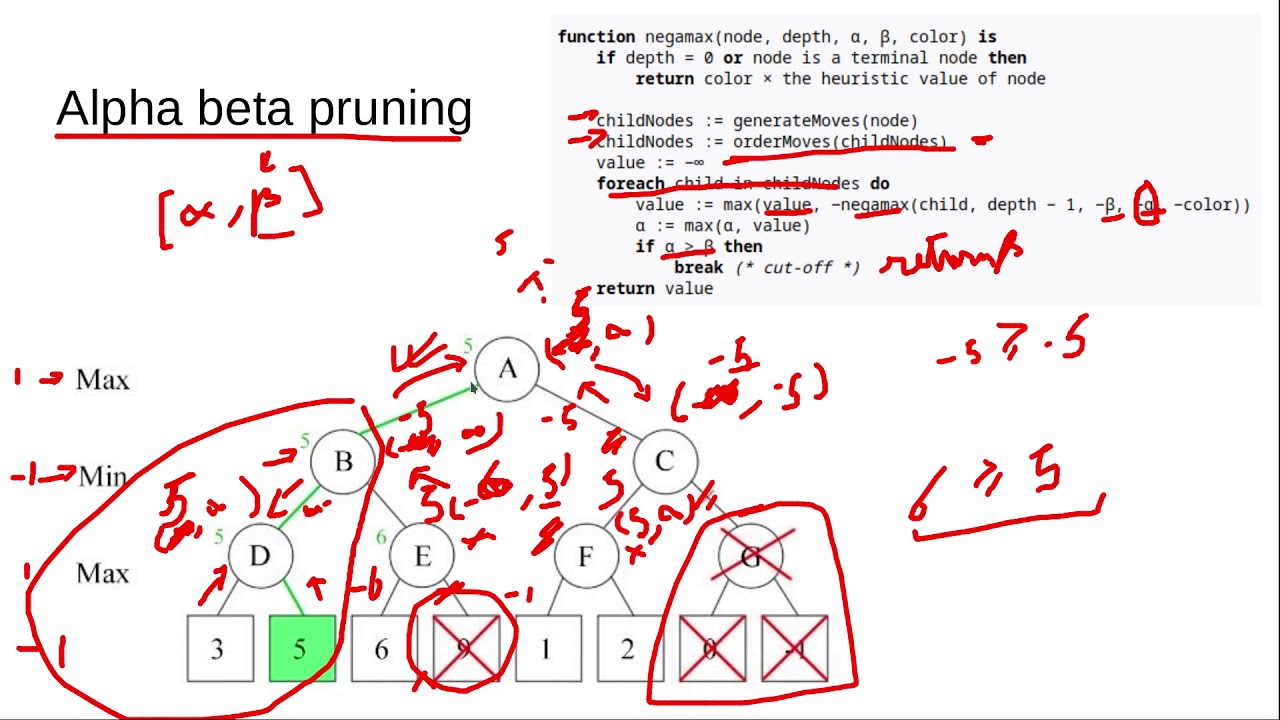 Alpha beta pruning
function negamax(node, depth, α, β, color) is
if depth = 0 or node is a terminal node then
return color × the heuristic value of node
childNodes := generateMoves(node)
childNodes := orderMoves(childNodes)
value := −∞
foreach child in childNodes do
value := max(value, −negamax(child, depth − 1, −β, −α, −color))
α := max(α, value)
if α ≥ β then
break (* cut-off *)
return value
[α, β]
5
-5 ≥ -5
5
A
1 → Max
-5
-5)
-5
-5
5
B
C
-1 → Min
6 ≥ 5
5
5
5
5
D
6
E
F
G
1
Max
-6
-1
-1
3
5
6
9
1
2
0
-1